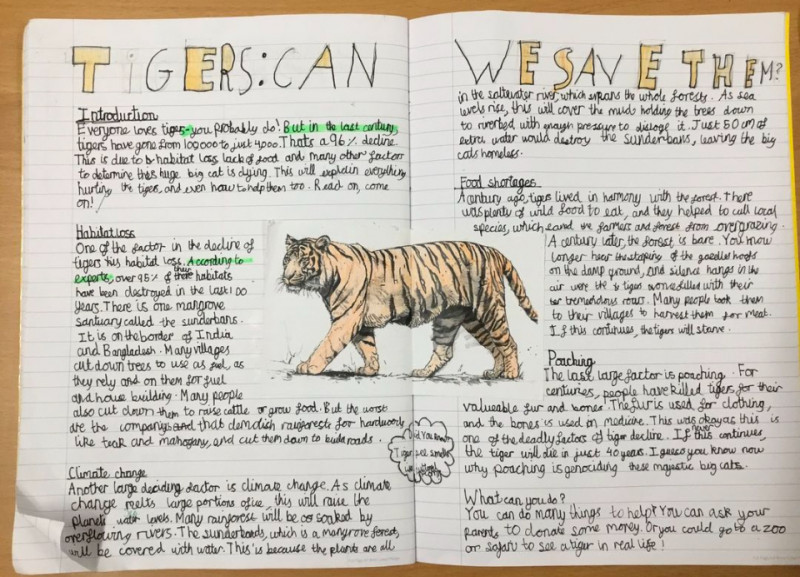 TIGERS: CAN WE SAVE THEM?
Introduction
Everyone loves tigers - you probably do! But in the last century
tigers have gone from 100000 to just 4000. Thats a 96% decline
This is due to habitat loss lack of food and many other factors
to determine this huge big cat is dying. This will explain everything
hurting the tigers, and even how to help them too. Read on, come
on!
Habitat loss
One of the factor in the decline of
tigers his habitat loss. According to
experts, over 95% of their habitats
have been destroyed in the last 100
years. There is one mangrove
santuary called the sunderbans.
It is on the border of India
and Bangladesh. Many villages
cut down trees to use as fuel, as
they rely on them for fuel
and house building. Many people
also cut down them to raise cattle or grow food. But the worst
are the companys that demolish rainforests for hardwoods
like teak and mahogany, and cut them down to build roads.
Climate change
Another large deciding factor is climate change. As climate
change melts large portions of ice, this will raise the
planets water levels. Many rainforest will be soaked by
overflowing rivers. The sunderbands, which is a mangrove forest,
will be covered with water. This is because the plants are all
Did you know
Tiger
in the saltwater river, which spans the whole forests. As sea
levels rise, this will cover the mud holding the trees down
to riverbed with enough pressure to dislodge it. Just 50cm of
extra water would destroy the sunderbans, leaving the big
cats homeless.
Food shortages
A century ago, tigers lived in harmony with the forest. There
was plenty of wild food to eat, and they helped to cull local
species, which saved the farmers and forest from overgrazing.
A century later, the forest is bare. You know
longer hear the of the gazelles hoofs
on the damp ground, and silence hangs in the
air were the tigers once filled with their
tremendous roars. Many people took them
to their villages to harvest them for meat.
If this continues, the tigers will starve.
Poaching
The last large factor is poaching. For
centuries, people have killed tigers, for their
valueable fur and bones. The fur is used for clothing,
and the bones is used in medicine. This was okay as this is
one of the deadly factors of tiger decline. If this continues,
the tiger will die in just 40 years. I guess you know now
why poaching is genociding these majestic big cats.
What can you do?
You can do many things to help! You can ask your
parents to donate some money. Or you could go to a zoo
or safari to see a tiger in real life!